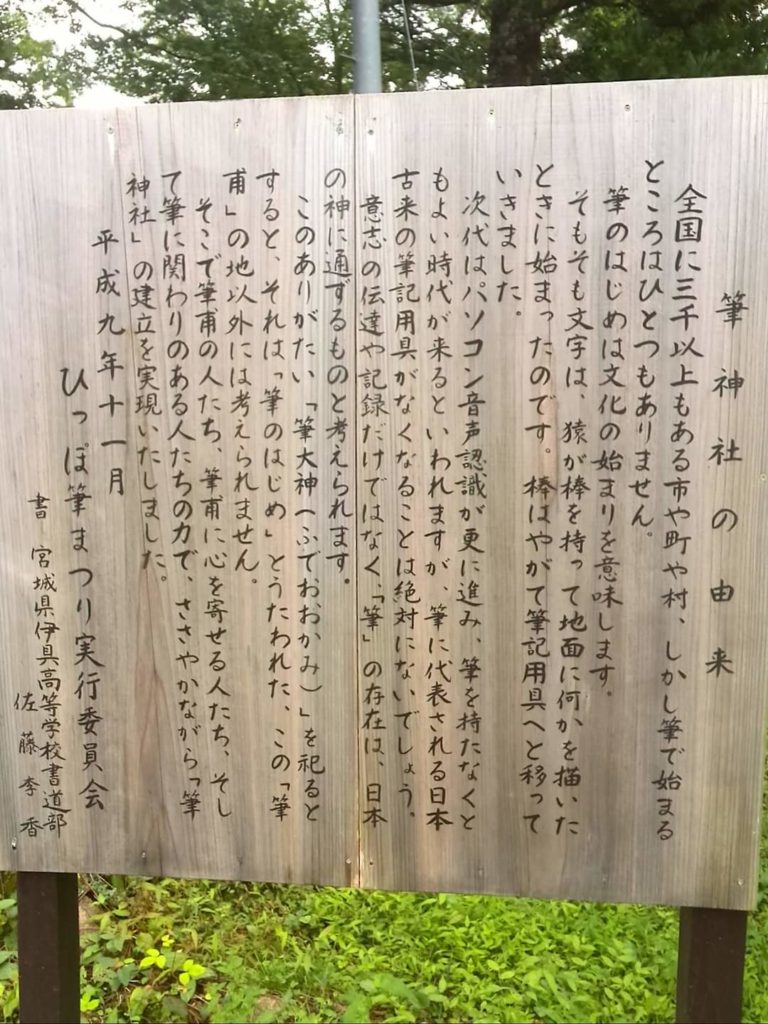 筆神社の由来
全国に三千以上もある市や町や村、しかし筆で始まる
ところはひとつもありません。
筆のはじめは文化の始まりを意味します。
そもそも文字は、猿が棒を持って地面に何かを描いた
ときに始まったのです。棒はやがて筆記用具へと移って
いきました。
次代はパソコン音声認識が更に進み、筆を持たなくと
もよい時代が来るといわれますが、筆に代表される日本
古来の筆記用具がなくなることは絶対にないでしょう。
意志の伝達や記録だけではなく、「筆」の存在は、日本
の神に通ずるものと考えられます。
このありがたい「筆大神(ふでおおかみ)」を祀ると
すると、それは「筆のはじめ」とうたわれた、この「筆
甫」の地以外には考えられません。
そこで筆甫の人たち、筆甫に心を寄せる人たち、そし
て筆に関わりのある人たちの力で、ささやかながら「筆
神社」の建立を実現いたしました。
平成九年十一月
ひっぽ筆まつり実行委員会
書 宮城県伊具高等学校書道部
佐藤李香